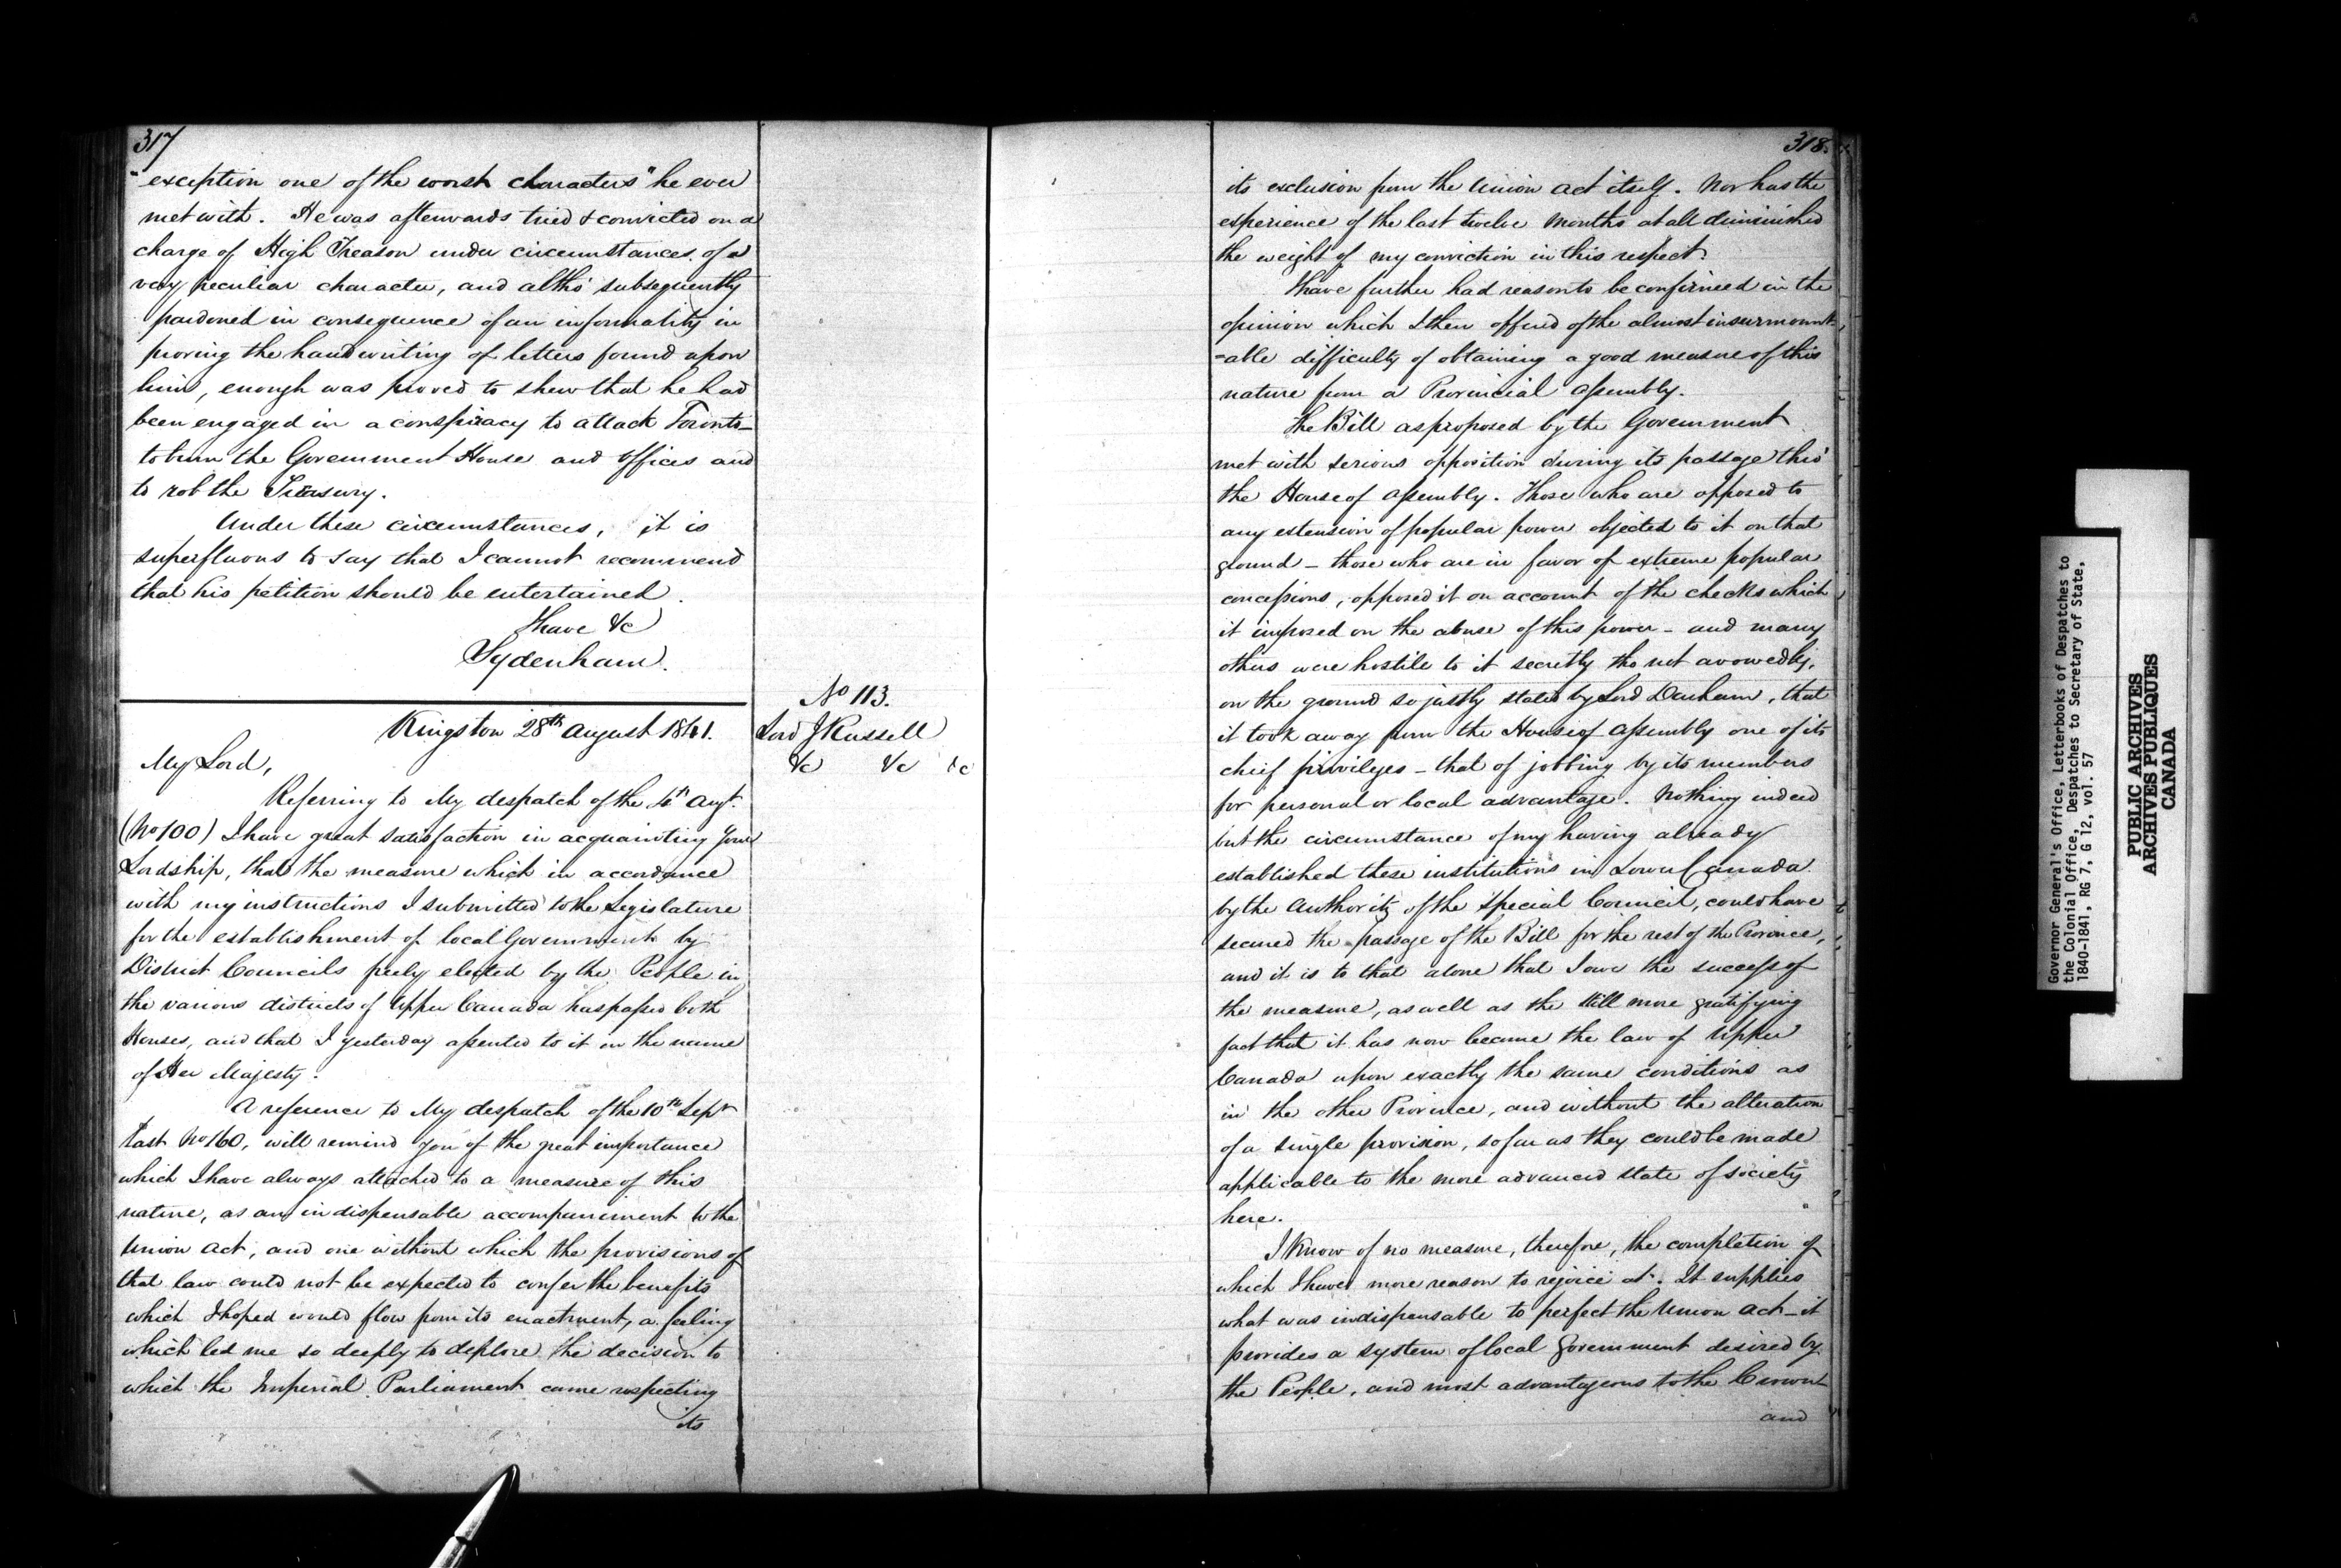 317
"exception one of the worst characters" he ever
met with. He was afterwards tried & convicted on a
charge of High Treason under circumstances of a
very peculiar character, and altho' subsequently
pardoned in consequence of an informality in
proving the handwriting of letters found upon
him, enough was proved to shew that he had
been engaged in a conspiracy to attack Toronto_
to burn the Government House and Offices and
to rob the Treasury.
Under these circumstances, it is
superfluous to say that I cannot recommend
that his petition should be entertained.
I have &c
Sydenham.
No 113.
Lord J Russell
&c &c &c
Kingston 28th August 1841.
My Lord,
Referring to My despatch of the 4th Augt.
(No 100) I have great satisfaction in acquainting Your
Lordship, that the measure which in accordance
with my instructions I submitted to the Legislature
for the establishment of local Governments by
District Councils freely elected by the People in
the various districts of Upper Canada has passed both
Houses, and that I yesterday assented to it in the name
of Her Majesty.
A reference to My despatch of the 10th Sepr
last No 160, will remind you of the great importance
which I have always attached to a measure of this
nature, as an indispensable accompaniment to the
Union Act, and one without which the provisions of
that law could not be expected to confer the benefits
which I hoped would flow from its enactment, a feeling
which led me so deeply to deplore the decision to
which the Imperial Parliament came respecting
its
318.
its exclusion from the Union Act itself. Nor has the
experience of the last twelve Months at all diminished
the weight of my conviction in this respect.
I have further had reason to be confirmed in the
opinion which I then offered of the almost insurmount-
=able difficulty of obtaining a good measure of this
nature from a Provincial Assembly.
The Bill as proposed by the Government
met with serious opposition during its passage thro'
the House of Assembly. Those who are opposed to
any extension of popular power objected to it on that
ground _ those who are in favor of extreme popular
concessions, opposed it on account of the checks which
it imposed on the abuse of this power _ and many
others were hostile to it secretly tho not avowedly,
on the ground so justly stated by Lord Durham, that
it took away from the House of Assembly one of its
chief privileges _ that of jobbing by its members
for personal or local advantage. Nothing indeed
but the circumstance of my having already
established these institutions in Lower Canada
by the Authority of the Special Council, could have
secured the passage of the Bill for the rest of the Province,
and it is to that alone that I owe the success of
the measure, as well as the still more gratifying
fact that it has now become the law of Upper
Canada upon exactly the same conditions as
in the other Province, and without the alteration
of a single provision, so far as they could be made
applicable to the more advanced state of society
here.
I know of no measure, therefore, the completion of
which I have more reason to rejoice at. It supplies
what was indispensable to perfect the Union Act _ it
provides a system of local Government desired by
the People, and most advantageous to the Crown
and
Governor General's Office, Letterbooks of Despatches to
the Colonial Office, Despatches to Secretary of State,
1840-1841, RG 7, G 12, vol. 57
PUBLIC ARCHIVES
ARCHIVES PUBLIQUES
CANADA